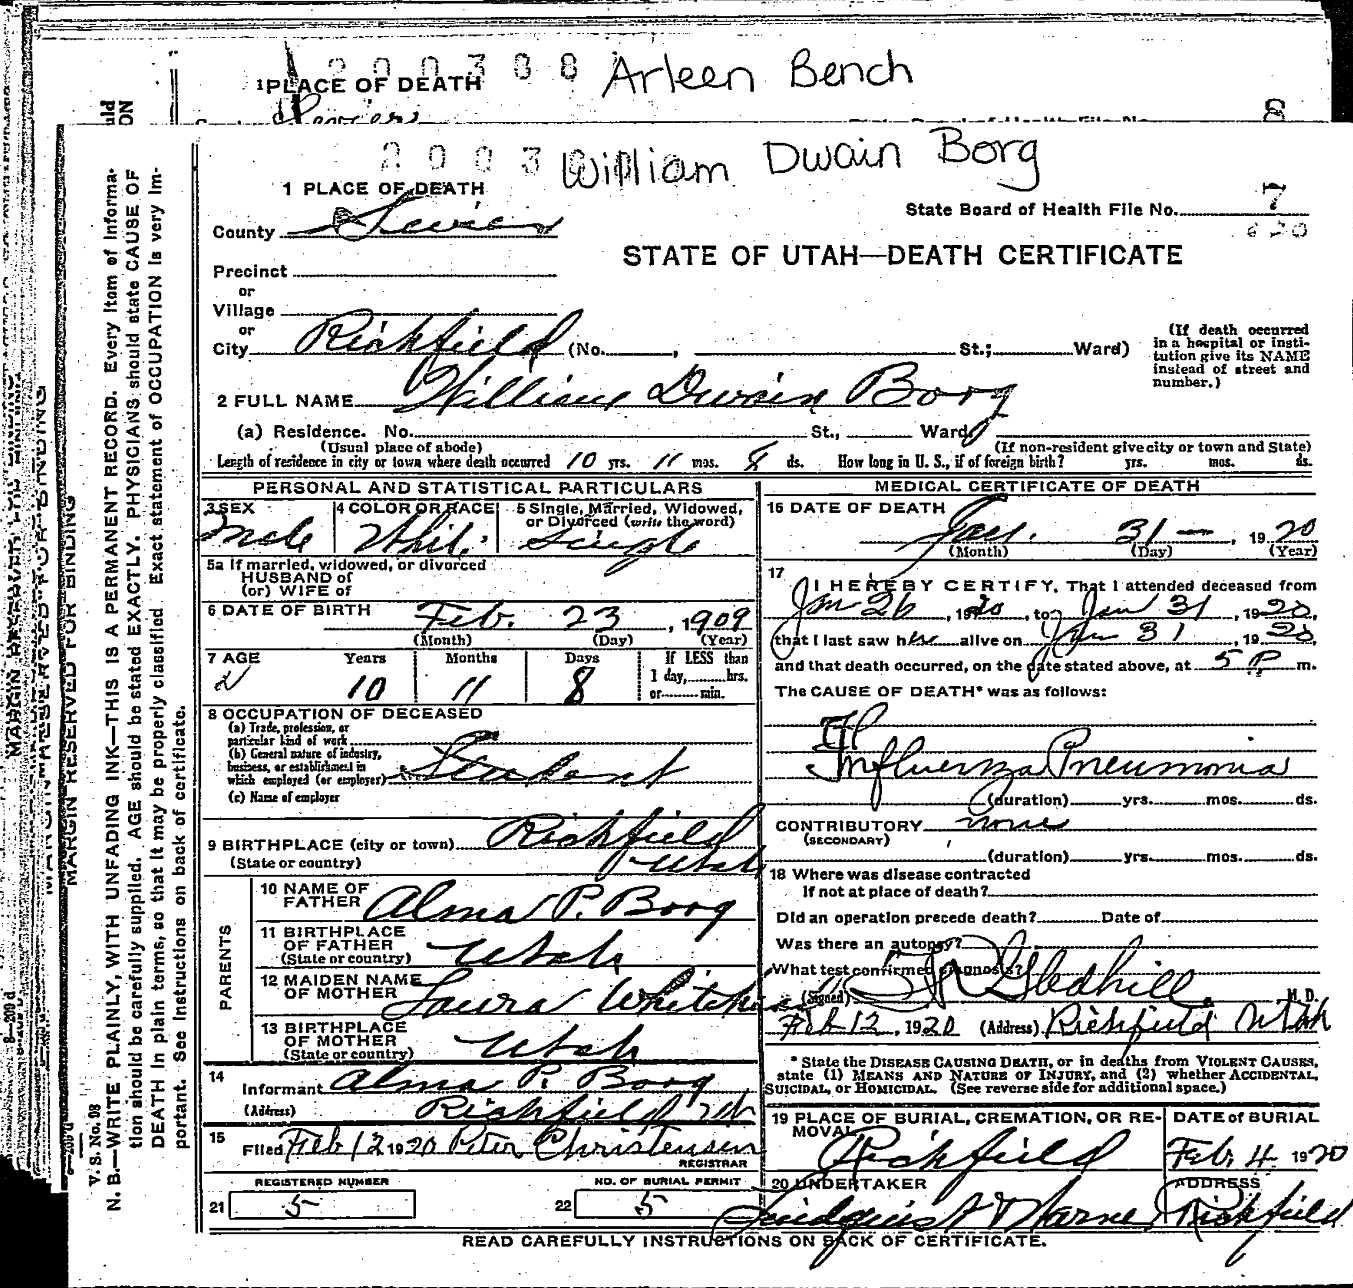 200388 Arleen Bench
1 PLACE OF DEATH
Sevier
8
2003 William Dwain Borg
1 PLACE OF DEATH
7
State Board of Health File No.
County Sevier
620
STATE OF UTAH—DEATH CERTIFICATE
Precinct
or
Village
or
City Richfield (No. , St.; Ward)
(If death occurred
in a hospital or insti-
tution give its NAME
instead of street and
number.)
2 FULL NAME William Dwain Borg
(a) Residence. No. St., Ward,
(Usual place of abode) (If non-resident give city or town and State)
Length of residence in city or town where death occurred 10 yrs. 11 mos. 8 ds. How long in U. S., if of foreign birth? yrs. mos. ds.
PERSONAL AND STATISTICAL PARTICULARS
3 SEX 4 COLOR OR RACE 5 Single, Married, Widowed,
or Divorced (write the word)
Male White Single
5a If married, widowed, or divorced
HUSBAND of
(or) WIFE of
6 DATE OF BIRTH Feb. 23, 1909
(Month) (Day) (Year)
7 AGE Years Months Days If LESS than
1 day, hrs.
10 11 8 or min.
8 OCCUPATION OF DECEASED
(a) Trade, profession, or
particular kind of work
(b) General nature of industry,
business, or establishment in
which employed (or employer) Student
(c) Name of employer
9 BIRTHPLACE (city or town) Richfield
(State or country) Utah
PARENTS
10 NAME OF
FATHER Alma P. Borg
11 BIRTHPLACE
OF FATHER
(State or country) Utah
12 MAIDEN NAME
OF MOTHER Laura
13 BIRTHPLACE
OF MOTHER
(State or country) Utah
14
Informant Alma P. Borg
(Address) Richfield Ut
15
Filed Feb 12 1920 Peter Christensen
REGISTRAR
REGISTERED NUMBER NO. OF BURIAL PERMIT
21 5 22 5
MEDICAL CERTIFICATE OF DEATH
16 DATE OF DEATH
Jan. 31 —, 1920
(Month) (Day) (Year)
17
I HEREBY CERTIFY, That I attended deceased from
Jan 26, 1920, to Jan 31, 1920,
that I last saw h alive on Jan 31, 1920,
and that death occurred, on the date stated above, at 5 P m.
The CAUSE OF DEATH* was as follows:
Influenza Pneumonia
(duration) yrs. mos. ds.
CONTRIBUTORY none
(SECONDARY)
(duration) yrs. mos. ds.
18 Where was disease contracted
If not at place of death?
Did an operation precede death? Date of
Was there an autopsy?
What test confirmed diagnosis?
(Signed) Gledhill, M. D.
Feb 12, 1920 (Address) Richfield Utah
* State the DISEASE CAUSING DEATH, or in deaths from VIOLENT CAUSES,
state (1) MEANS AND NATURE OF INJURY, and (2) whether ACCIDENTAL,
SUICIDAL, or HOMICIDAL. (See reverse side for additional space.)
19 PLACE OF BURIAL, CREMATION, OR RE-
MOVAL DATE of BURIAL
Richfield Feb. 4 1920
20 UNDERTAKER ADDRESS
Richfield
READ CAREFULLY INSTRUCTIONS ON BACK OF CERTIFICATE.
MARGIN RESERVED FOR BINDING
V. S. No. 98
N. B.—WRITE PLAINLY, WITH UNFADING INK—THIS IS A PERMANENT RECORD. Every item of informa-
tion should be carefully supplied. AGE should be stated EXACTLY. PHYSICIANS should state CAUSE OF
DEATH in plain terms, so that it may be properly classified. Exact statement of OCCUPATION is very im-
portant. See instructions on back of certificate.